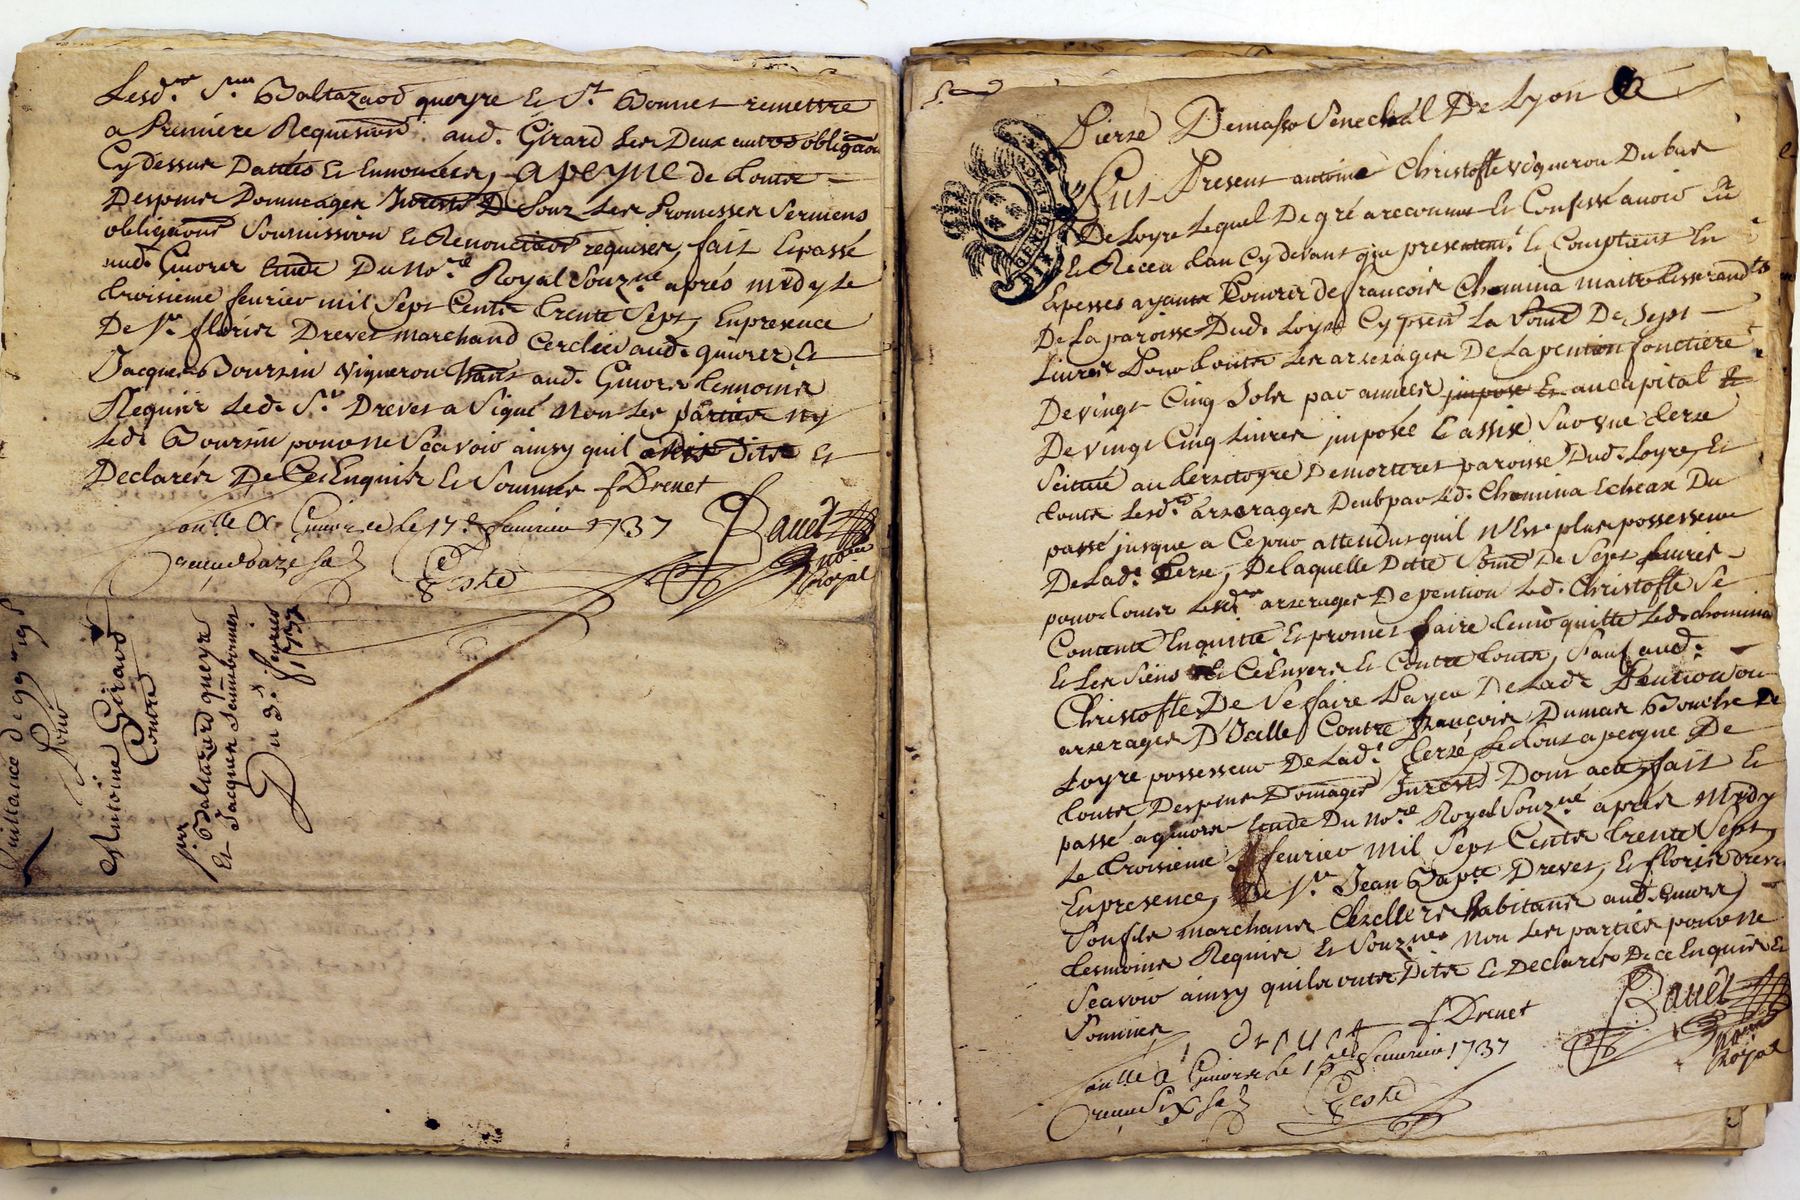 Lesd. Srs Baltazard queyre Et St Bonnet remettre
a Premiere Requisition aud. Girard Les Deux autres obliga͠on
Cy dessus Dattés Et Ennoncées, a peyne de toutes
Despens Dommages Sous Les Promesses Sermens
obliga͠ons Soumission Et Renonciaons requises, fait Et passé
aud. Givorz Etude Du No.re Royal Souz.né aprés midy Le
troisieme fevrier mil Sept Cents trente Sept, En presence
De Sr. floris Drevet marchand aud. givorz Et
Jacques Boursin vigneron hant aud. Givors temoins
Requis Led. Sr. Drevet a Signé Non Les parties ny
Led. Boursin pour ne Scavoir ainsy quil Dits Et
Declarés De Ce Enquis Et Sommés fDrevet
a Givors Le 17e fevrier 1737
Bauet
No.re
Royal
Quittance
Pour
Antoine Girard
Contre
Srs Baltazard queyre
Et Jacques
Du 3e fevrier
1737
Pierre Demasso Senechal De Lyon
Fut Present antoine Christofle vigneron Du bas
De Loyre Lequel De gré a reconnu Et Confessé avoir Eu
Et Receu tan Cy devant que presentemt. Et Comptant En
Especes ayants Cours de francois Chomina maitre tisserand
De La paroisse Dud. Loyre Cy presen La Some De Sept
Livres Pour toutes Les arrerages De La pention fonctiere
De vingt Cinq Sols par années au Capital
De vingt Cinq Livres imposée Et assise Sur une terre
Scituée au territoyre De morteret paroisse Dud. Loyre, Et
toutes Lesd. arrerages Deub par Led. Chomina Echeax Du
passé jusque a Ce jour attendu quil N'Est plus possesseur
De Lad. terre, De laquelle Ditte Some De Sept Livres
pour toutes Lesd. arrerages De pention Led. Christofle Se
Contente En quitte Et promet faire tenir quitte Led. chomina
Et Les Siens Envers Et Contre toutes, Sauf aud.
Christofle De Se faire Payer De Lad. Pention ou
arrerages D'Icelle Contre francois Dumas De
Loyre possesseur De Lad. terre, Le tout a peyne De
toutes Despens Domages Dont acte, fait Et
passé a givors Etude Du No.re Royal Souz.né aprés Midy
Le troisieme fevrier mil Sept Cents trente Sept
En presence, De Sr. Jean Bapte. Drevet, Et floris drevet
Son fils marchands habitants aud. Givors,
temoins Requis Et Souz.nés Non Les parties pour ne
Scavoir ainsy quils ont Dits Et Declarés De Ce Enquis Et
Sommés drevet fDrevet
Bauet
No.re
Royal
a Givors Le 15e fevrier 1737
receu Six